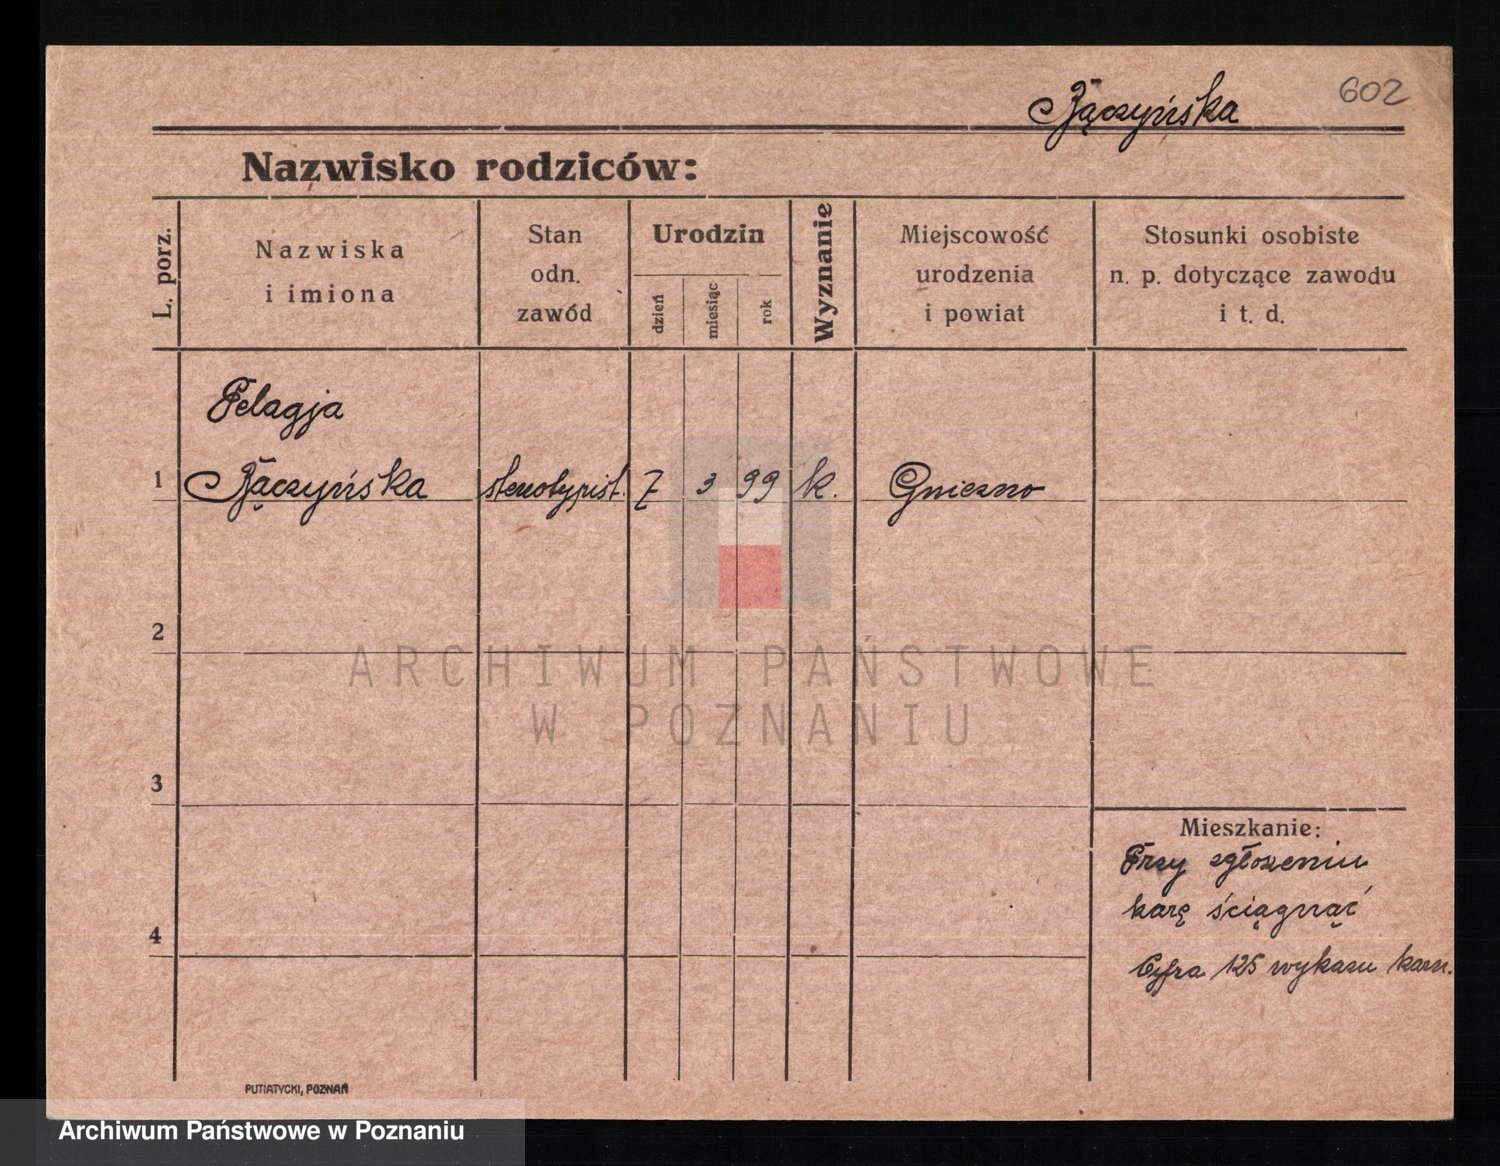 602
Bączyńska
Nazwisko rodziców:
L. porz.
Nazwiska
i imiona
Stan
odn.
zawód
Urodzin
dzień
miesiąc
rok
Wyznanie
Miejscowość
urodzenia
i powiat
Stosunki osobiste
n. p. dotyczące zawodu
i t. d.
Pelagja
1 Bączyńska stereotypist. 7 3 99 k. Gniezno
2
3
4
Mieszkanie:
Przy zgłoszeniu
karę ściągnąć
Cyfra 125 wykazu karn.
PUTIATYCKI, POZNAŃ
ARCHIWUM PAŃSTWOWE
W POZNANIU
Archiwum Państwowe w Poznaniu